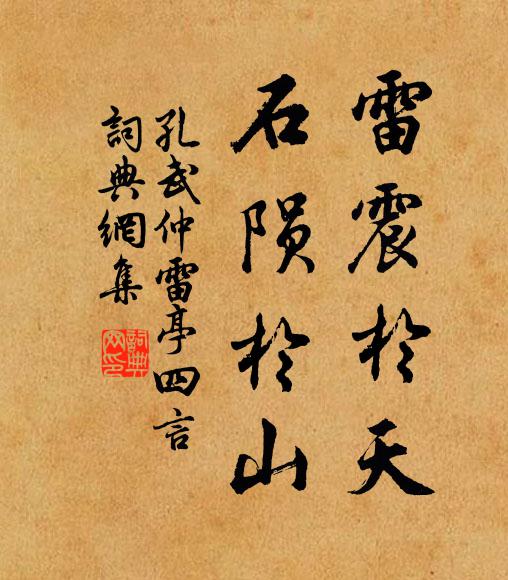 雷震於天
石陨於山
孔武仲雷亭四言
詞典網集
詞典網印